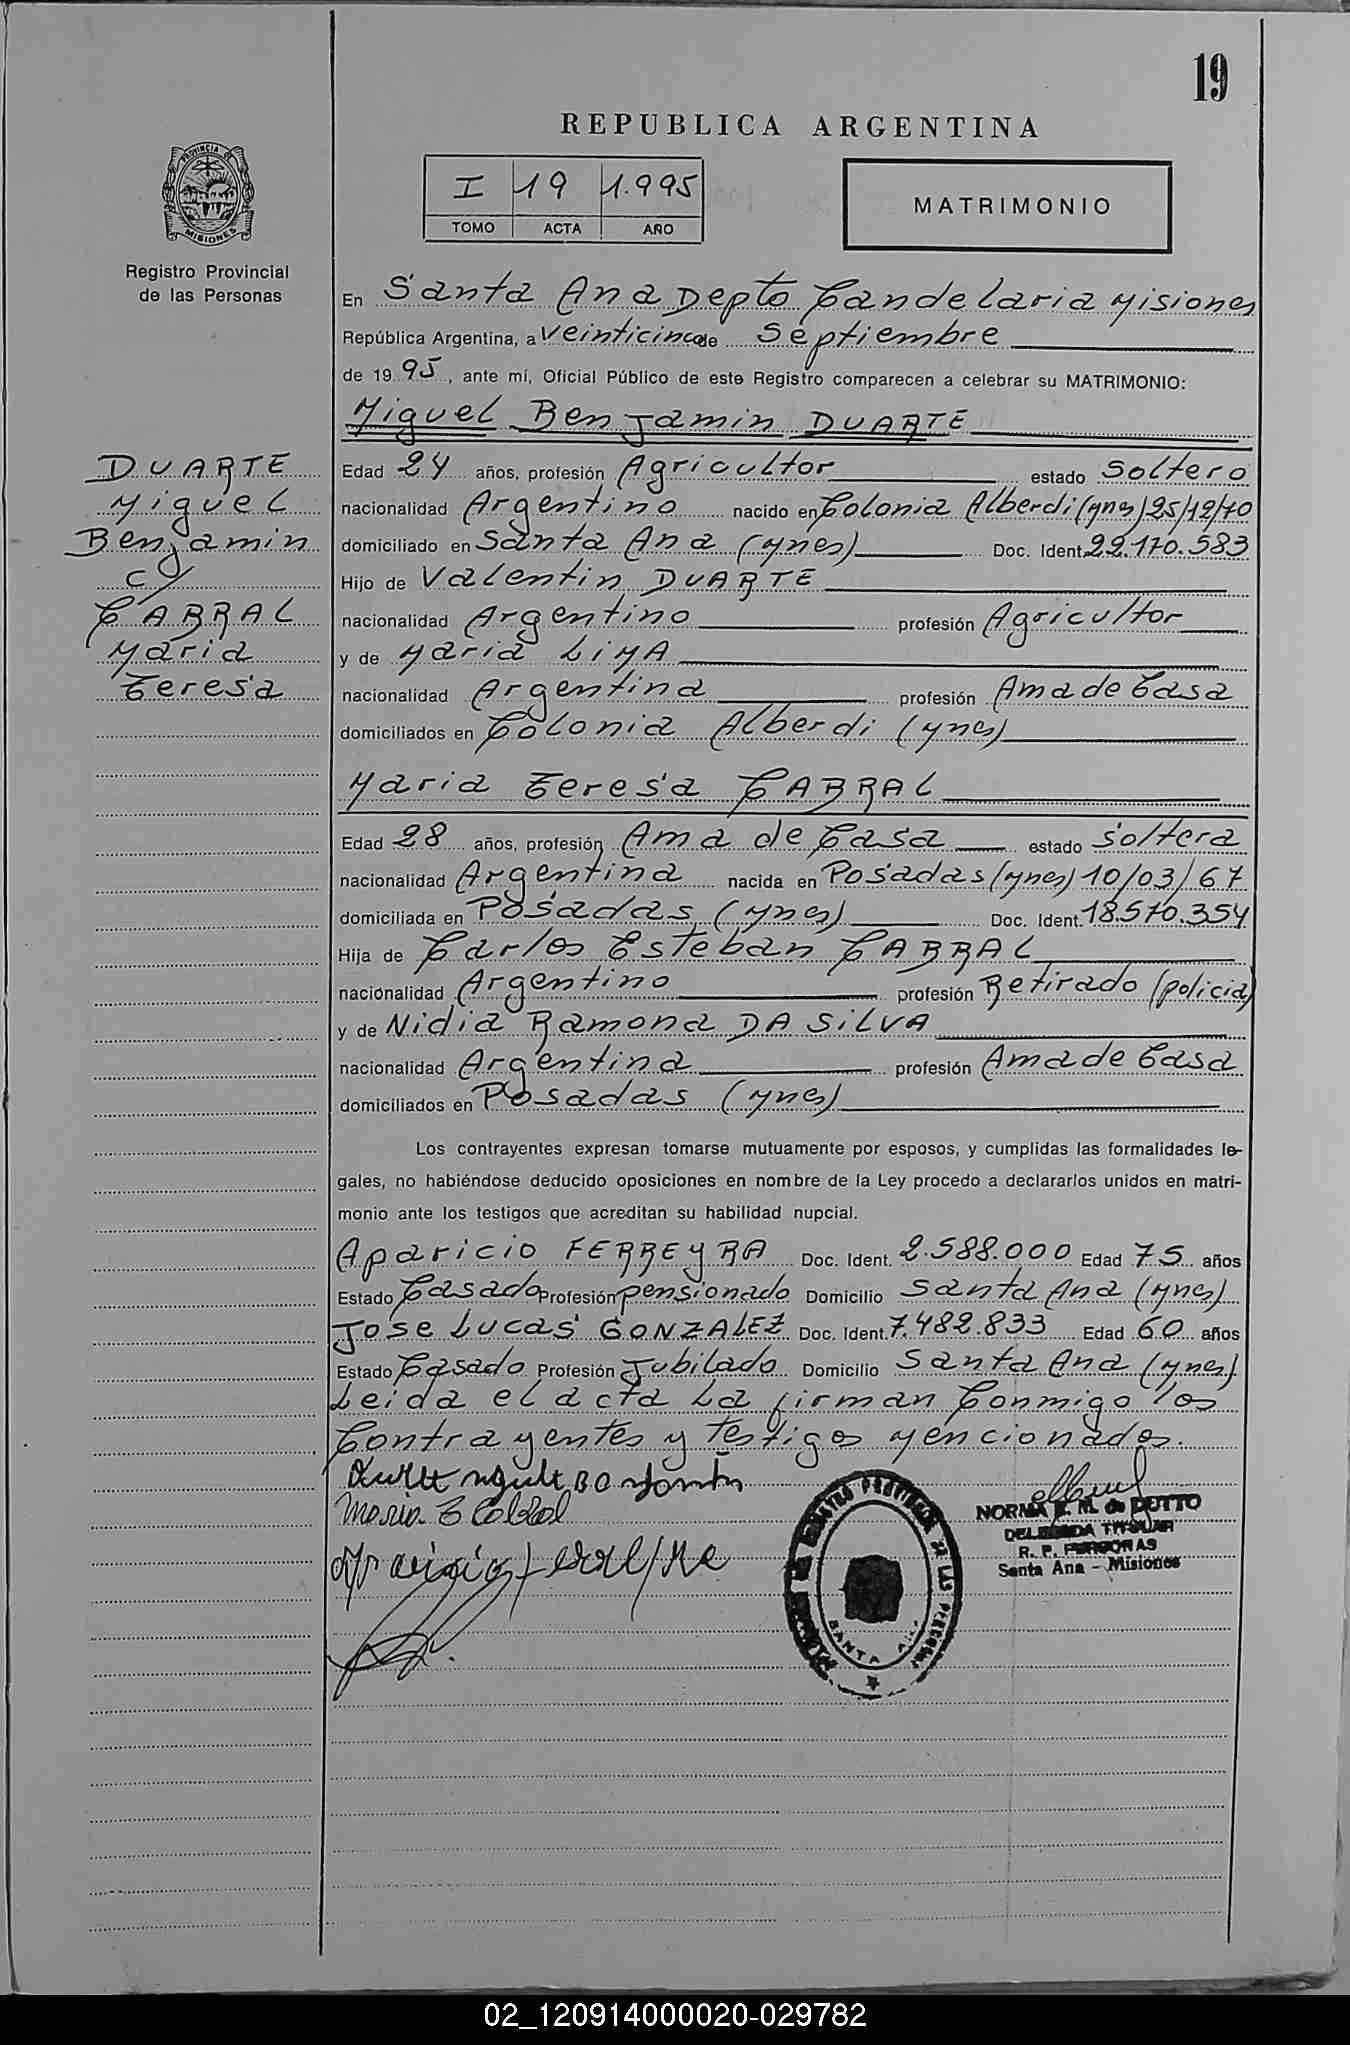 19
REPUBLICA ARGENTINA
I 19 1.995
TOMO ACTA AÑO
MATRIMONIO
PROVINCIA DE
MISIONES
Registro Provincial
de las Personas
En Santa Ana Depto Candelaria Misiones
República Argentina, a veinticinco de Septiembre
de 1995, ante mí, Oficial Público de este Registro comparecen a celebrar su MATRIMONIO:
Miguel Benjamin DUARTE
DUARTE
Miguel
Benjamin
c/
CABRAL
Maria
Teresa
Edad 24 años, profesión Agricultor estado Soltero
nacionalidad Argentino nacido en Colonia Alberdi (Mnes) 25/12/70
domiciliado en Santa Ana (Mnes) Doc. Ident. 22.170.583
Hijo de Valentin DUARTE
nacionalidad Argentino profesión Agricultor
y de Maria LIMA
nacionalidad Argentina profesión Ama de Casa
domiciliados en Colonia Alberdi (Mnes)
Maria Teresa CABRAL
Edad 28 años, profesión Ama de Casa estado Soltera
nacionalidad Argentina nacida en Posadas (Mnes) 10/03/67
domiciliada en Posadas (Mnes) Doc. Ident. 18.570.354
Hija de Carlos Esteban CABRAL
nacionalidad Argentino profesión Retirado (policia)
y de Nidia Ramona DA SILVA
nacionalidad Argentina profesión Ama de Casa
domiciliados en Posadas (Mnes)
Los contrayentes expresan tomarse mutuamente por esposos, y cumplidas las formalidades le-
gales, no habiéndose deducido oposiciones en nombre de la Ley procedo a declararlos unidos en matri-
monio ante los testigos que acreditan su habilidad nupcial.
Aparicio FERREyRA Doc. Ident. 2.588.000 Edad 75 años
Estado Casado Profesión pensionado Domicilio Santa Ana (Mnes)
Jose Lucas GONZALEZ Doc. Ident. 7.482.833 Edad 60 años
Estado Casado Profesión Jubilado Domicilio Santa Ana (Mnes)
Leida el acta La firman Conmigo los
Contrayentes y Testigos Mencionados.
Maria T Cabral
NORMA E. M. de DUTTO
DELEGADA TITULAR
R. P. PERSONAS
Santa Ana - Misiones
REGISTRO PROVINCIAL DE LAS PERSONAS
SANTA ANA
02_120914000020-029782